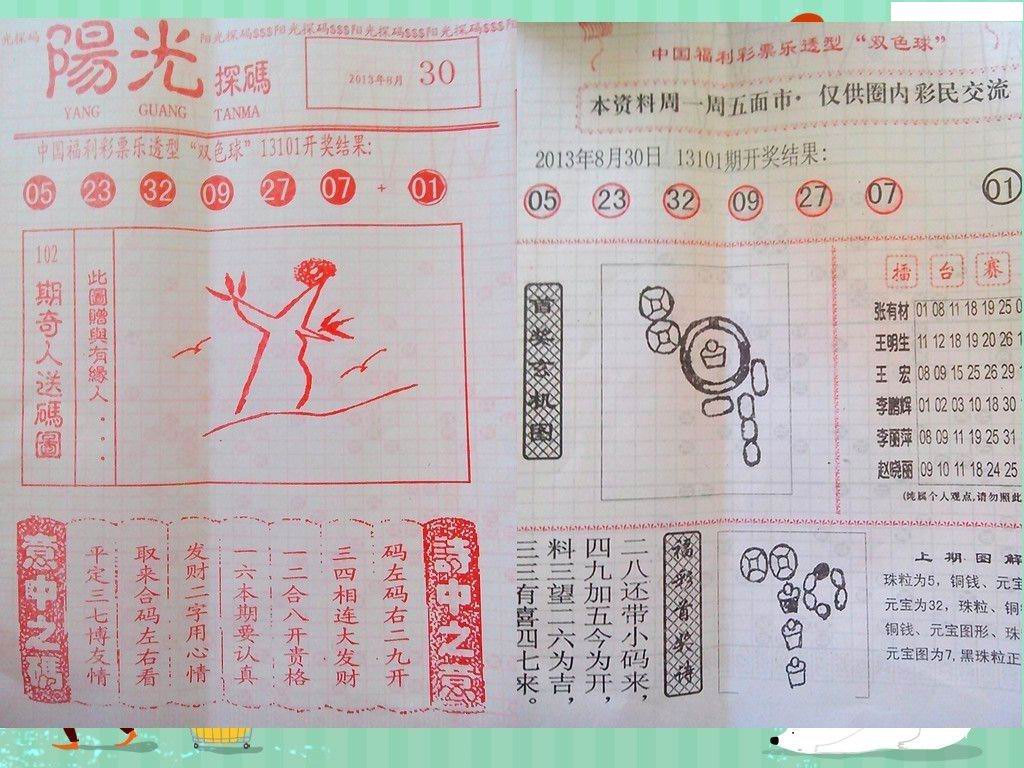 光探码 阳光探码$$$阳光探码$$$阳光探码$$$阳光探码$$$
陽光探碼
YANG GUANG TANMA
2013年8月 30
中国福利彩票乐透型“双色球”13101开奖结果：
05 23 32 09 27 07 + 01
102
期奇人送碼圖
此圖贈與有緣人....
码左码右二九开
三四相连大发财
一二合八开贵格
一六本期要认真
发财二字用心情
取来合码左右看
平定三七博友情
中国福利彩票乐透型“双色球”
本资料周一周五面市·仅供圈内彩民交流
2013年8月30日 13101期开奖结果：
05 23 32 09 27 07 01
首奖玄机图
擂台赛
张有材 01 08 11 18 19 25 0
王明生 11 12 18 19 20 26 1
王宏 08 09 15 25 26 29 1
李鹏辉 01 02 03 10 18 30 1
李丽萍 08 09 11 19 25 31
赵晓丽 09 10 11 18 24 25
(纯属个人观点,请勿照此
福彩首奖诗
二八还带小码来，
四九加五今为开，
料三望二六为吉，
三三有喜四七来。
上期图解
珠粒为5，铜钱、元宝
元宝为32，珠粒、铜
铜钱、元宝图形、珠
元宝图为7,黑珠粒正